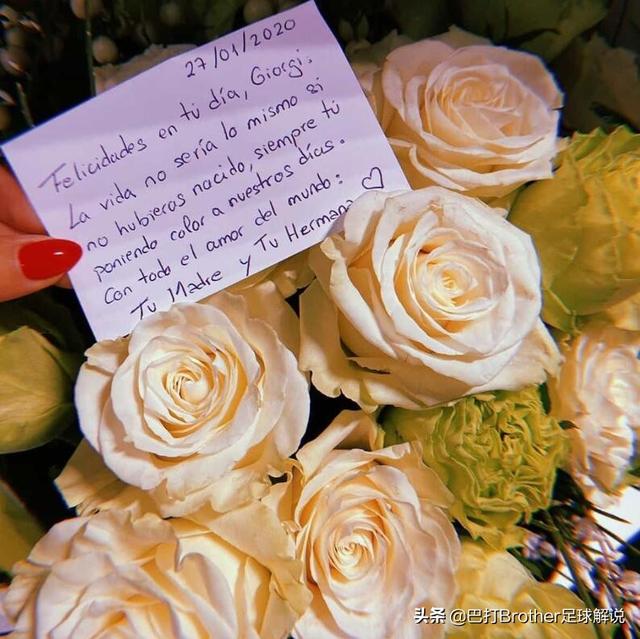 27/01/2020
Felicidades en tu día, Giorgi:
La vida no sería lo mismo si
no hubieras nacido, siempre tú
poniendo color a nuestros días.
Con todo el amor del mundo: ♡
Tu Madre y Tu Hermana
头条 @巴打Brother足球解说